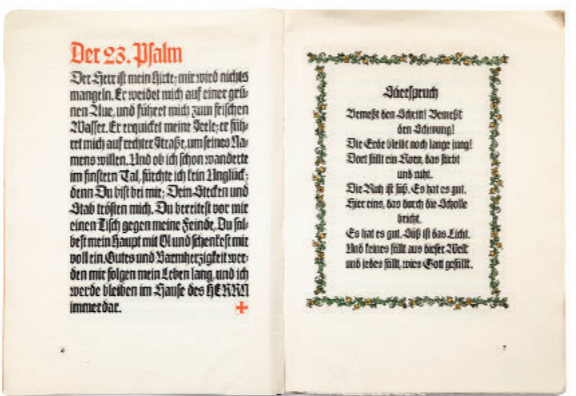 Der 23. Psalm
Der Herr ist mein Hirte; mir wird nichts
mangeln. Er weidet mich auf einer grü-
nen Aue, und führet mich zum frischen
Wasser. Er erquicket meine Seele; er füh-
ret mich auf rechter Straße, um seines Na-
mens willen. Und ob ich schon wanderte
im finstern Tal, fürchte ich kein Unglück;
denn Du bist bei mir; Dein Stecken und
Stab trösten mich. Du bereitest vor mir
einen Tisch gegen meine Feinde. Du sal-
best mein Haupt mit Öl und schenkest mir
voll ein. Gutes und Barmherzigkeit wer-
den mir folgen mein Leben lang, und ich
werde bleiben im Hause des HERRN
immerdar.
Säerspruch
Bemeßt den Schritt! Bemeßt
den Schwung!
Die Erde bleibt noch lange jung!
Dort fällt ein Korn, das stirbt
und ruht.
Die Ruh ist süß. Es hat es gut.
Hier eins, das durch die Scholle
bricht.
Es hat es gut. Süß ist das Licht.
Und keines fällt aus dieser Welt
und jedes fällt, wies Gott gefällt.